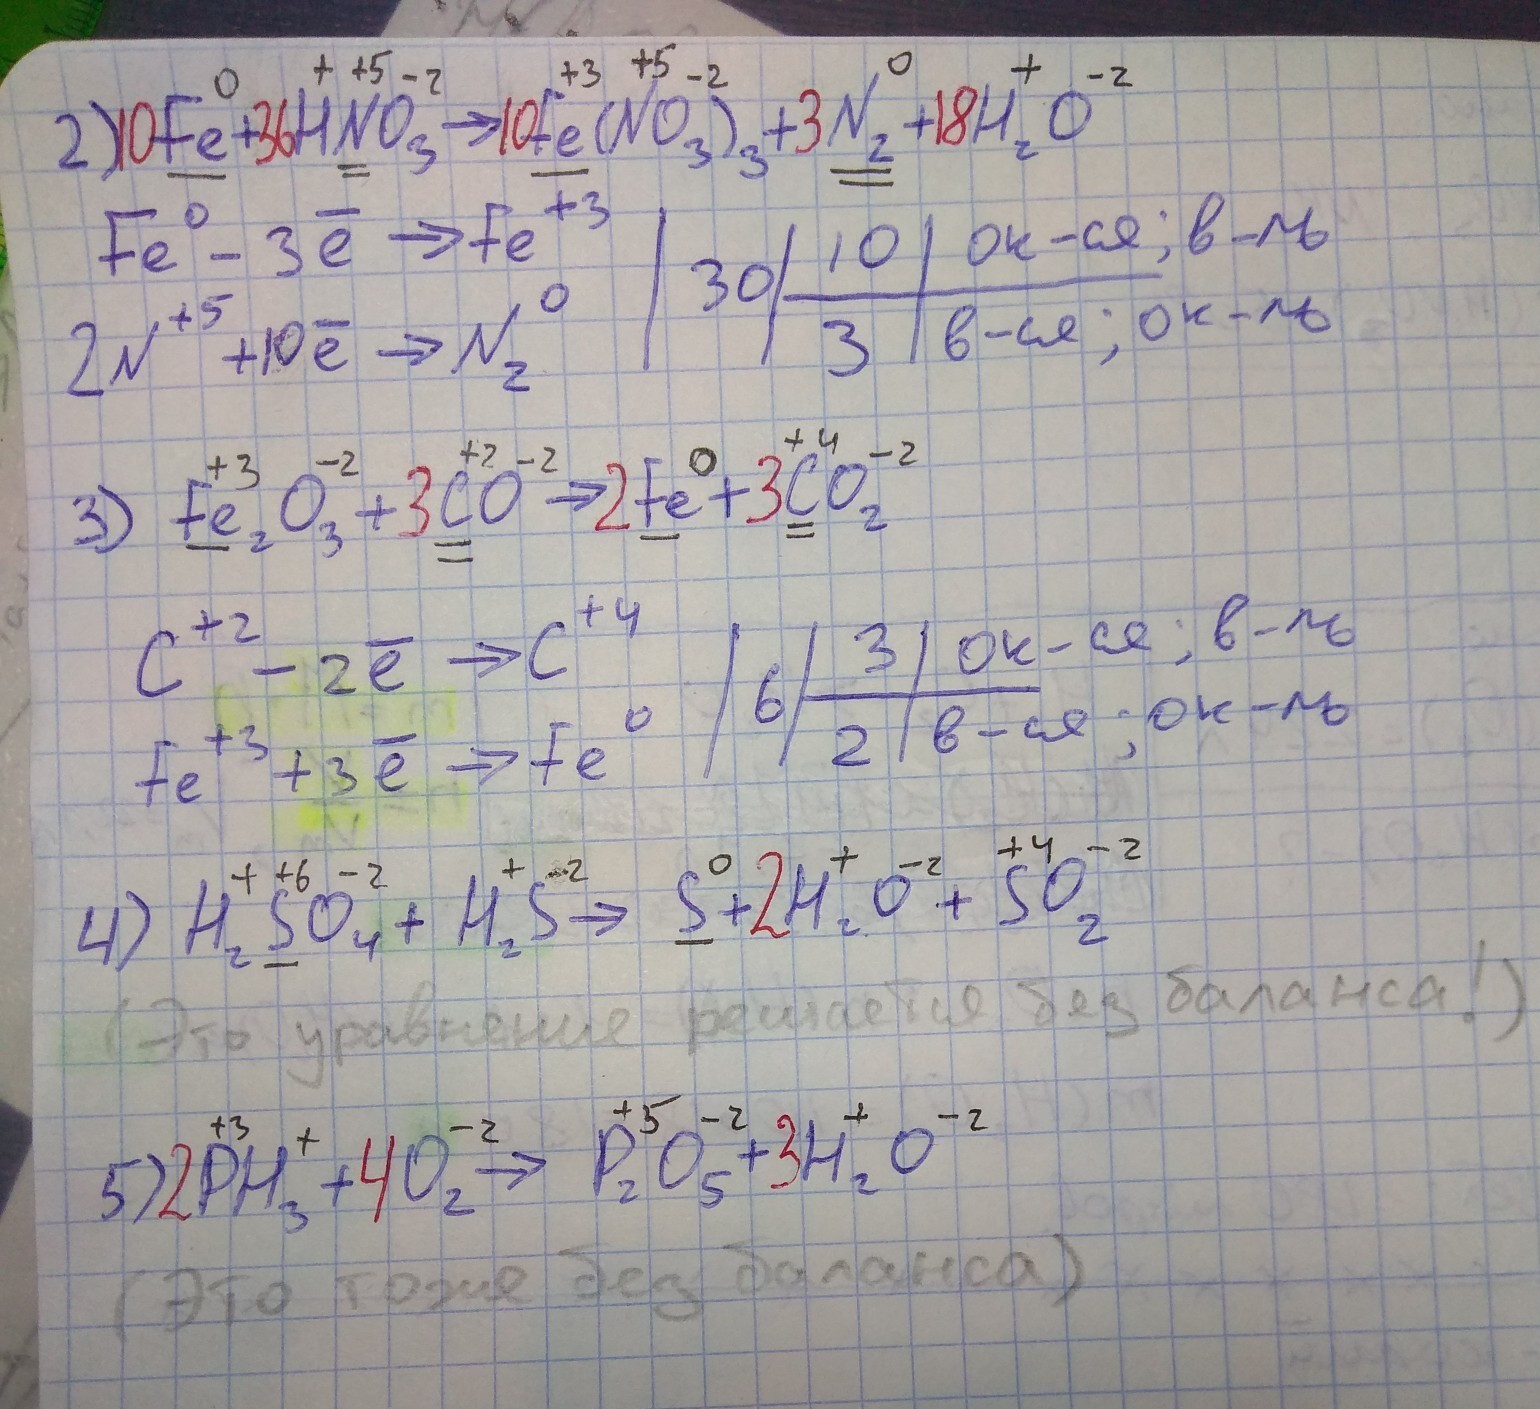 2) 10Fe⁰ + 36H⁺N⁺⁵O₃⁻² → 10Fe⁺³(N⁺⁵O₃⁻²)₃ + 3N₂⁰ + 18H₂⁺O⁻²
Fe⁰ - 3e̅ → Fe⁺³ | 30 | 10 | ок-ся; в-ль
2N⁺⁵ + 10e̅ → N₂⁰ | 3 | в-ся; ок-ль
3) Fe₂⁺³O₃⁻² + 3C⁺²O⁻² → 2Fe⁰ + 3C⁺⁴O₂⁻²
C⁺² - 2e̅ → C⁺⁴ | 6 | 3 | ок-ся; в-ль
Fe⁺³ + 3e̅ → Fe⁰ | 2 | в-ся; ок-ль
4) H₂⁺S⁺⁶O₄⁻² + H₂⁺S⁻² → S⁰ + 2H₂⁺O⁻² + S⁺⁴O₂⁻²
(Это уравнение решается без баланса!)
5) 2P⁺³H₃⁺ + 4O₂⁻² → P₂⁺⁵O₅⁻² + 3H₂⁺O⁻²
(Это тоже без баланса)